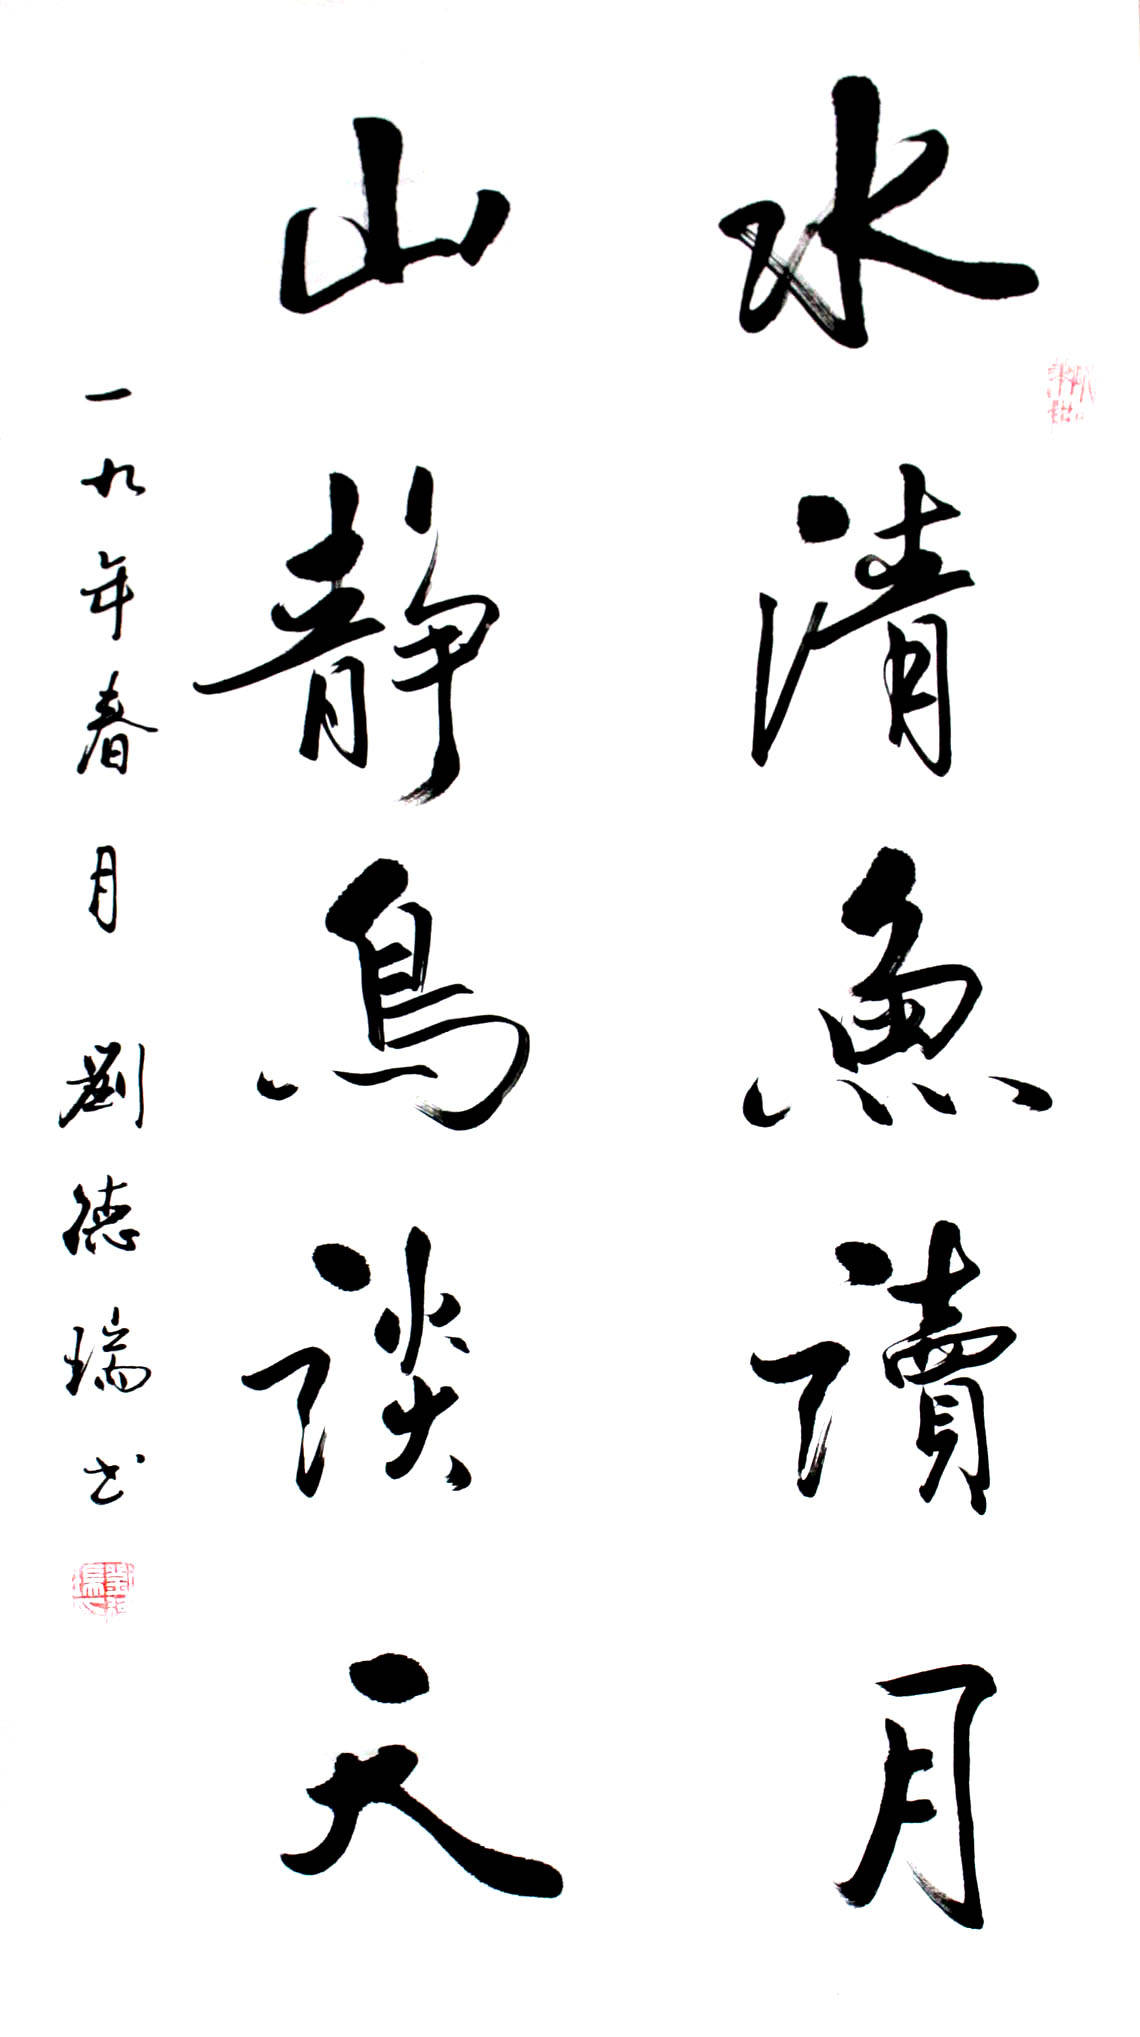 水清魚讀月
山静鳥談天
一九年春月 劉德瑞书